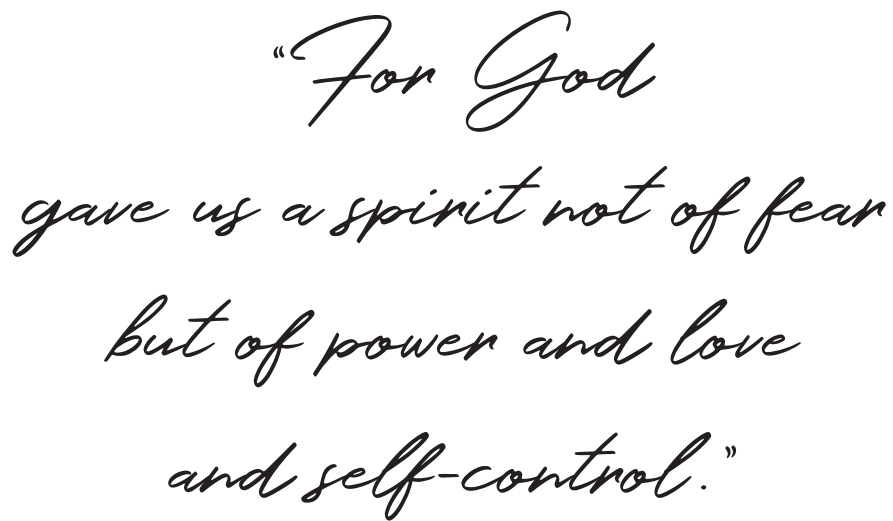 “For God
gave us a spirit not of fear
but of power and love
and self-control.”